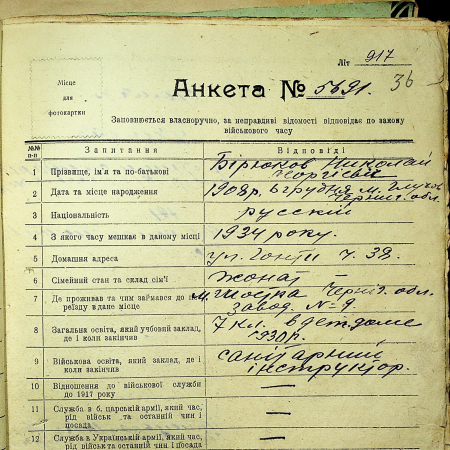 Літ 917
36
Місце
для
фотокартки
Анкета № 5691.
Заповнюється власноручно, за неправдиві відомості відповідає по закону
військового часу
№№ п-п Запитання Відповіді
1 Прізвище, ім'я та по-батькові Бірюков Николай
Георгієвич
2 Дата та місце народження 1908 р. 6 грудня м. Глухов
Черниг. обл.
3 Національність русский
4 З якого часу мешкає в даному місці 1934 року.
5 Домашня адреса ул. Гонти ч. 38.
6 Сімейний стан та склад сім'ї жонат –
7 Де проживав та чим займався до приїзду в дане місце м. Шостка Черніг. обл.
завод. № 9
8 Загальна освіта, який учбовий заклад,
де і коли закінчив 7 кл. в дет. доме
1930 р.
9 Військова освіта, який заклад, де
і коли закінчив санітарний
інструктор.
10 Відношення до військової служби
до 1917 року —
11 Служба в б. царській армії, який час,
рід військ та останній чин і
посада —
12 Служба в Українській армії, який час,
рід військ та останній чин і посада —